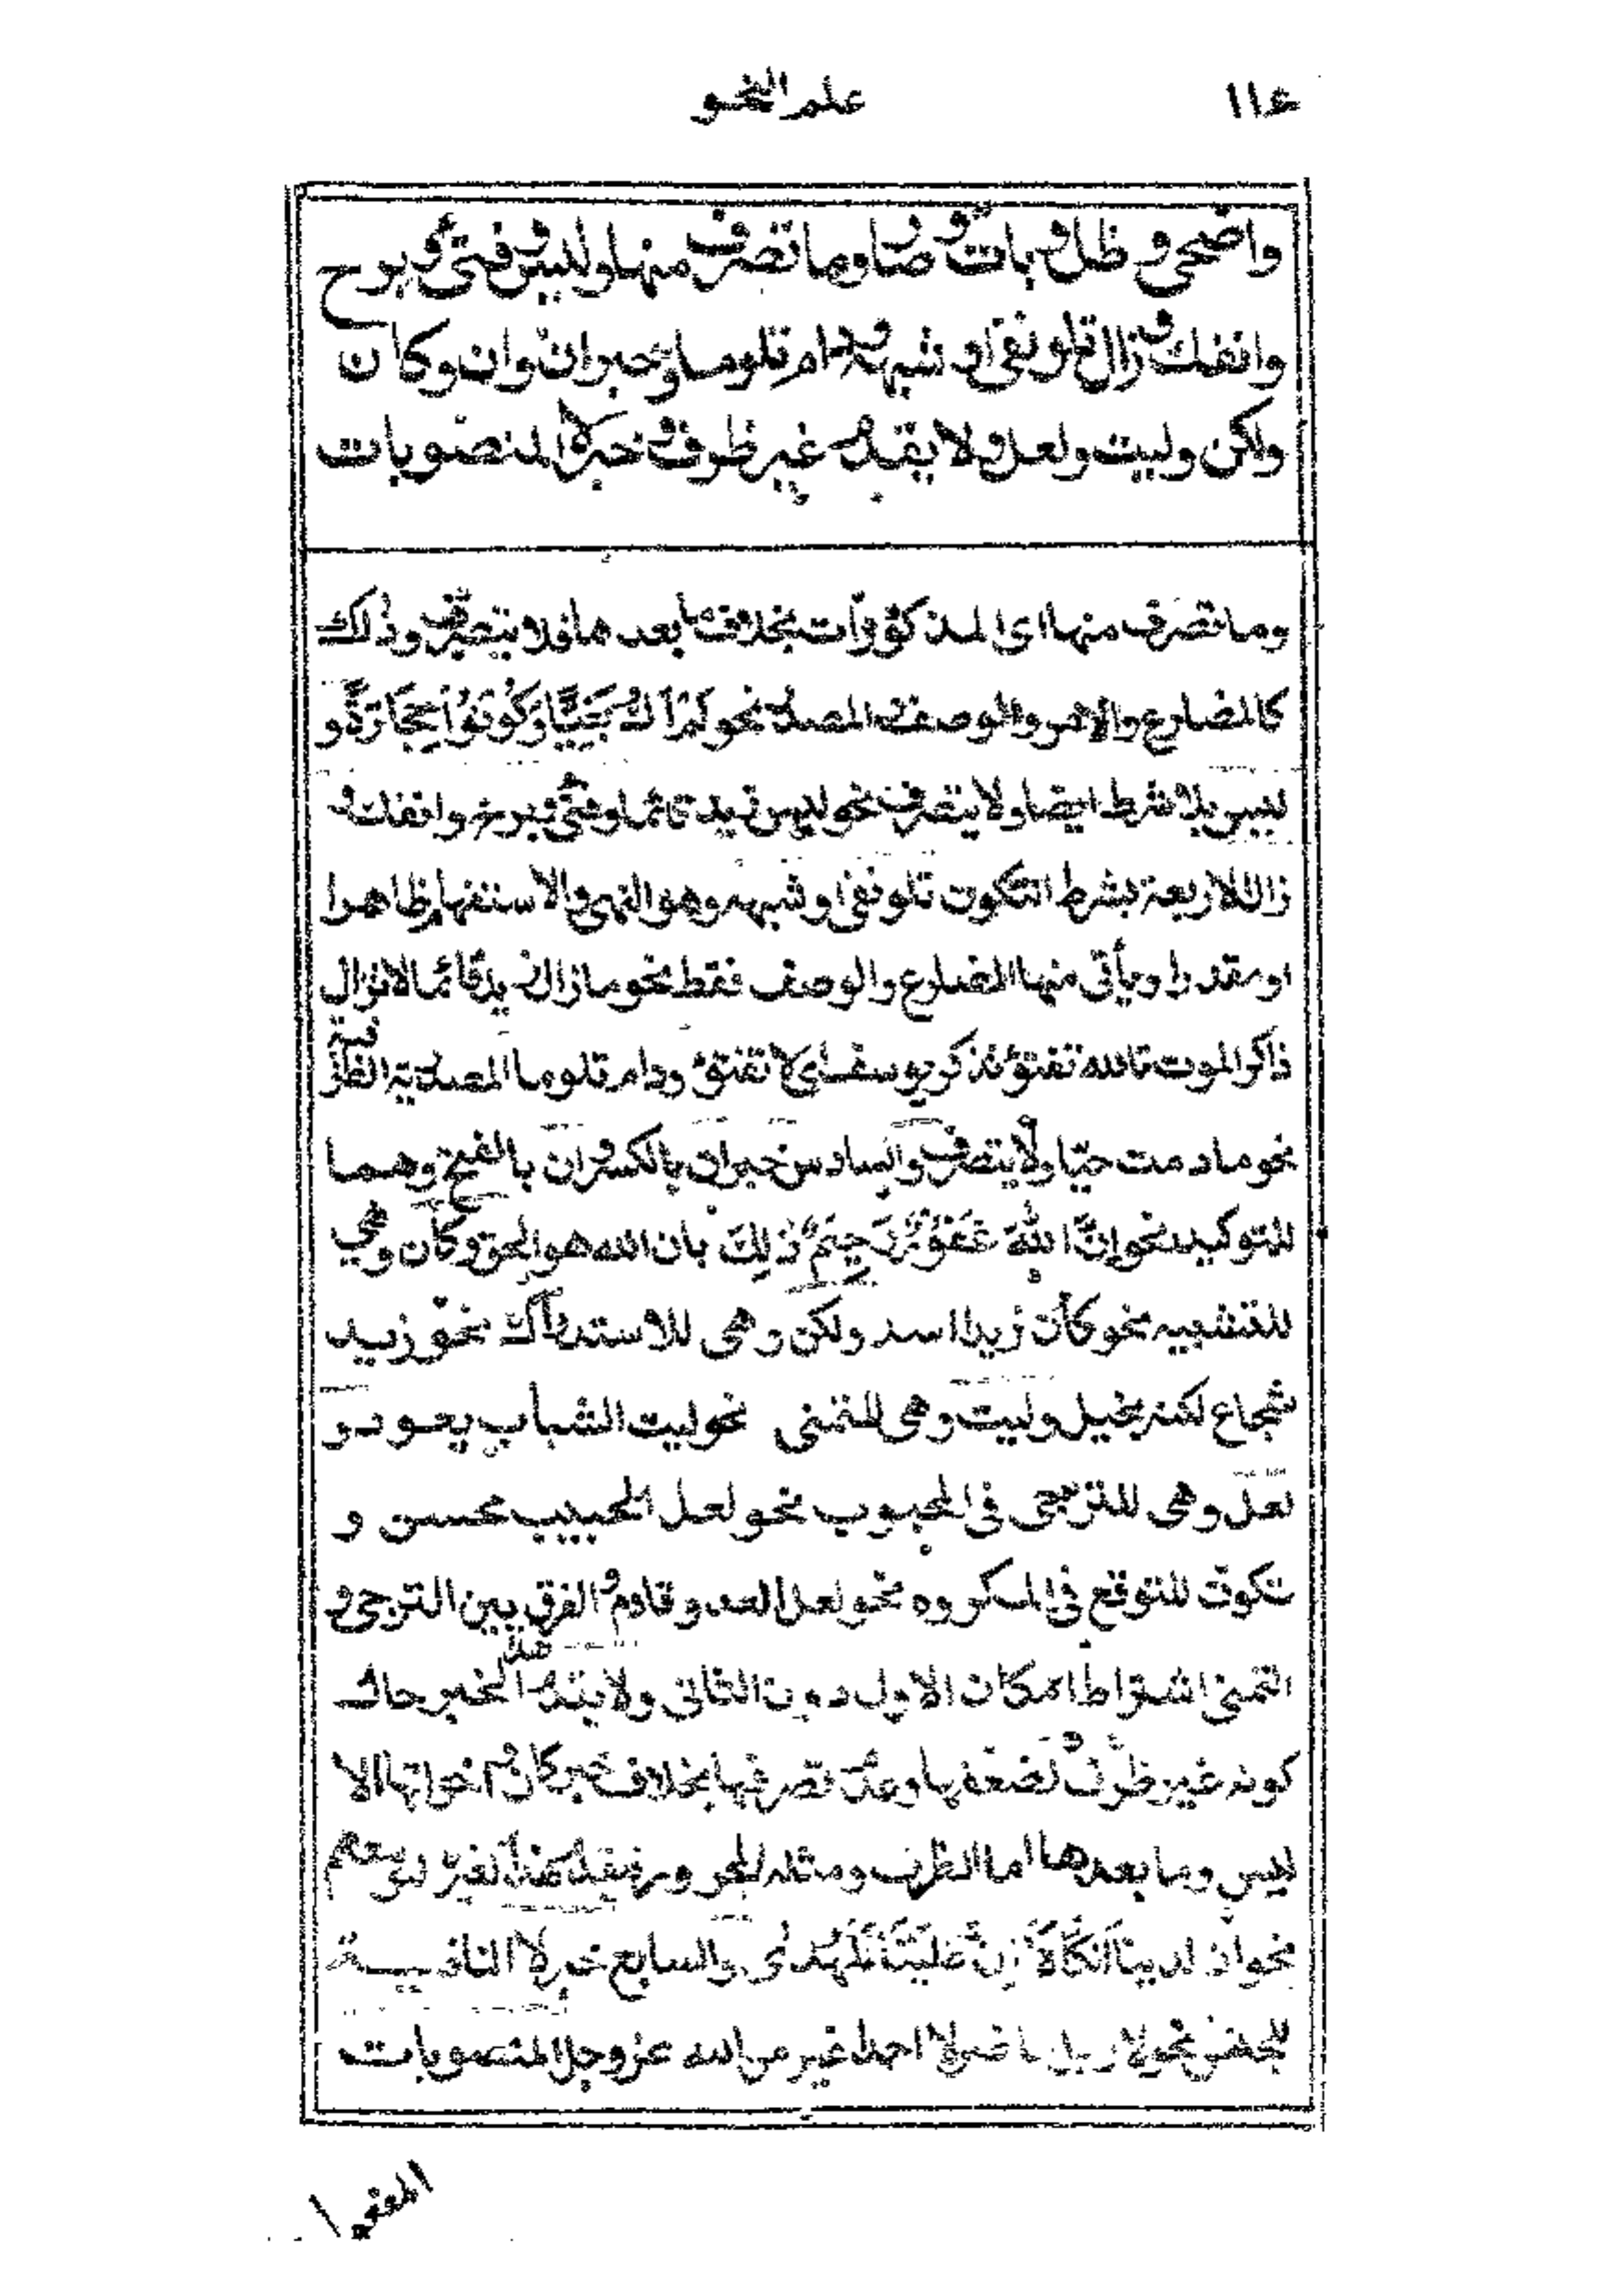 ١١٤ علم النحو
واضحى وظل وبات وصار وما تصرف منها وليس وفتئ وبرح
وانفك وزال تلو نفي او شبهه ودام تلو ما وخبر ان وان وكان
ولكن وليت ولعل ولا يقدم غير ظرف وخبر لا المنصوبات
وما تصرف منها اى المذكورات بخلاف ما بعدها فلا يتصرف وذلك
كالمضارع والامر والوصف والمصدر نحو لم اك بغيا وكونوا حجارة و
ليس بلا شرط ايضا ولا يتصرف نحو ليس زيد قائما وفتئ وبرح وانفك و
زال الاربعة بشرط ان تكون تلو نفي او شبهه وهو النهي والاستفهام ظاهرا
او مقدرا ويأتي منها المضارع والوصف فقط نحو ما زال زيد قائما لا تزال
ذاكر الموت تالله تفتؤ تذكر يوسف اى لا تفتؤ ودام تلو ما المصدرية الظرفية
نحو ما دمت حيّا ولا يتصرف والسادس خبر ان بالكسر وان بالفتح وهما
للتوكيد نحو انَّ اللهَ غَفُوْرٌ رَحِيْمٌ ذٰلِكَ بان الله هو الحق وكأن وهي
للتشبيه نحو كأن زيدا اسد ولكن وهى للاستدراك نحو زيد
شجاع لكنه بخيل وليت وهى للتمنى نحو ليت الشباب يعود و
لعل وهى للترجى فى المحبوب نحو لعل الحبيب محسن و
تكون للتوقع فى المكروه نحو لعل العدو قادم والفرق بين الترجى و
التمنى اشتراط امكان الاول دون الثانى ولا يقدم هذا الخبر حال
كونه غير ظرف لضعفها وعدم تصرفها بخلاف خبر كان واخواتها الا
ليس وما بعدها اما الظرف ومثله المجرور فيقدم هنا لتوسعهم
نحو ان لدينا انكالا ان علينا للهدى والسابع خبر لا النافية
للجنس نحو لا رجل حاضر لا احد اغير من الله عز وجل المنصوبات
المفعول